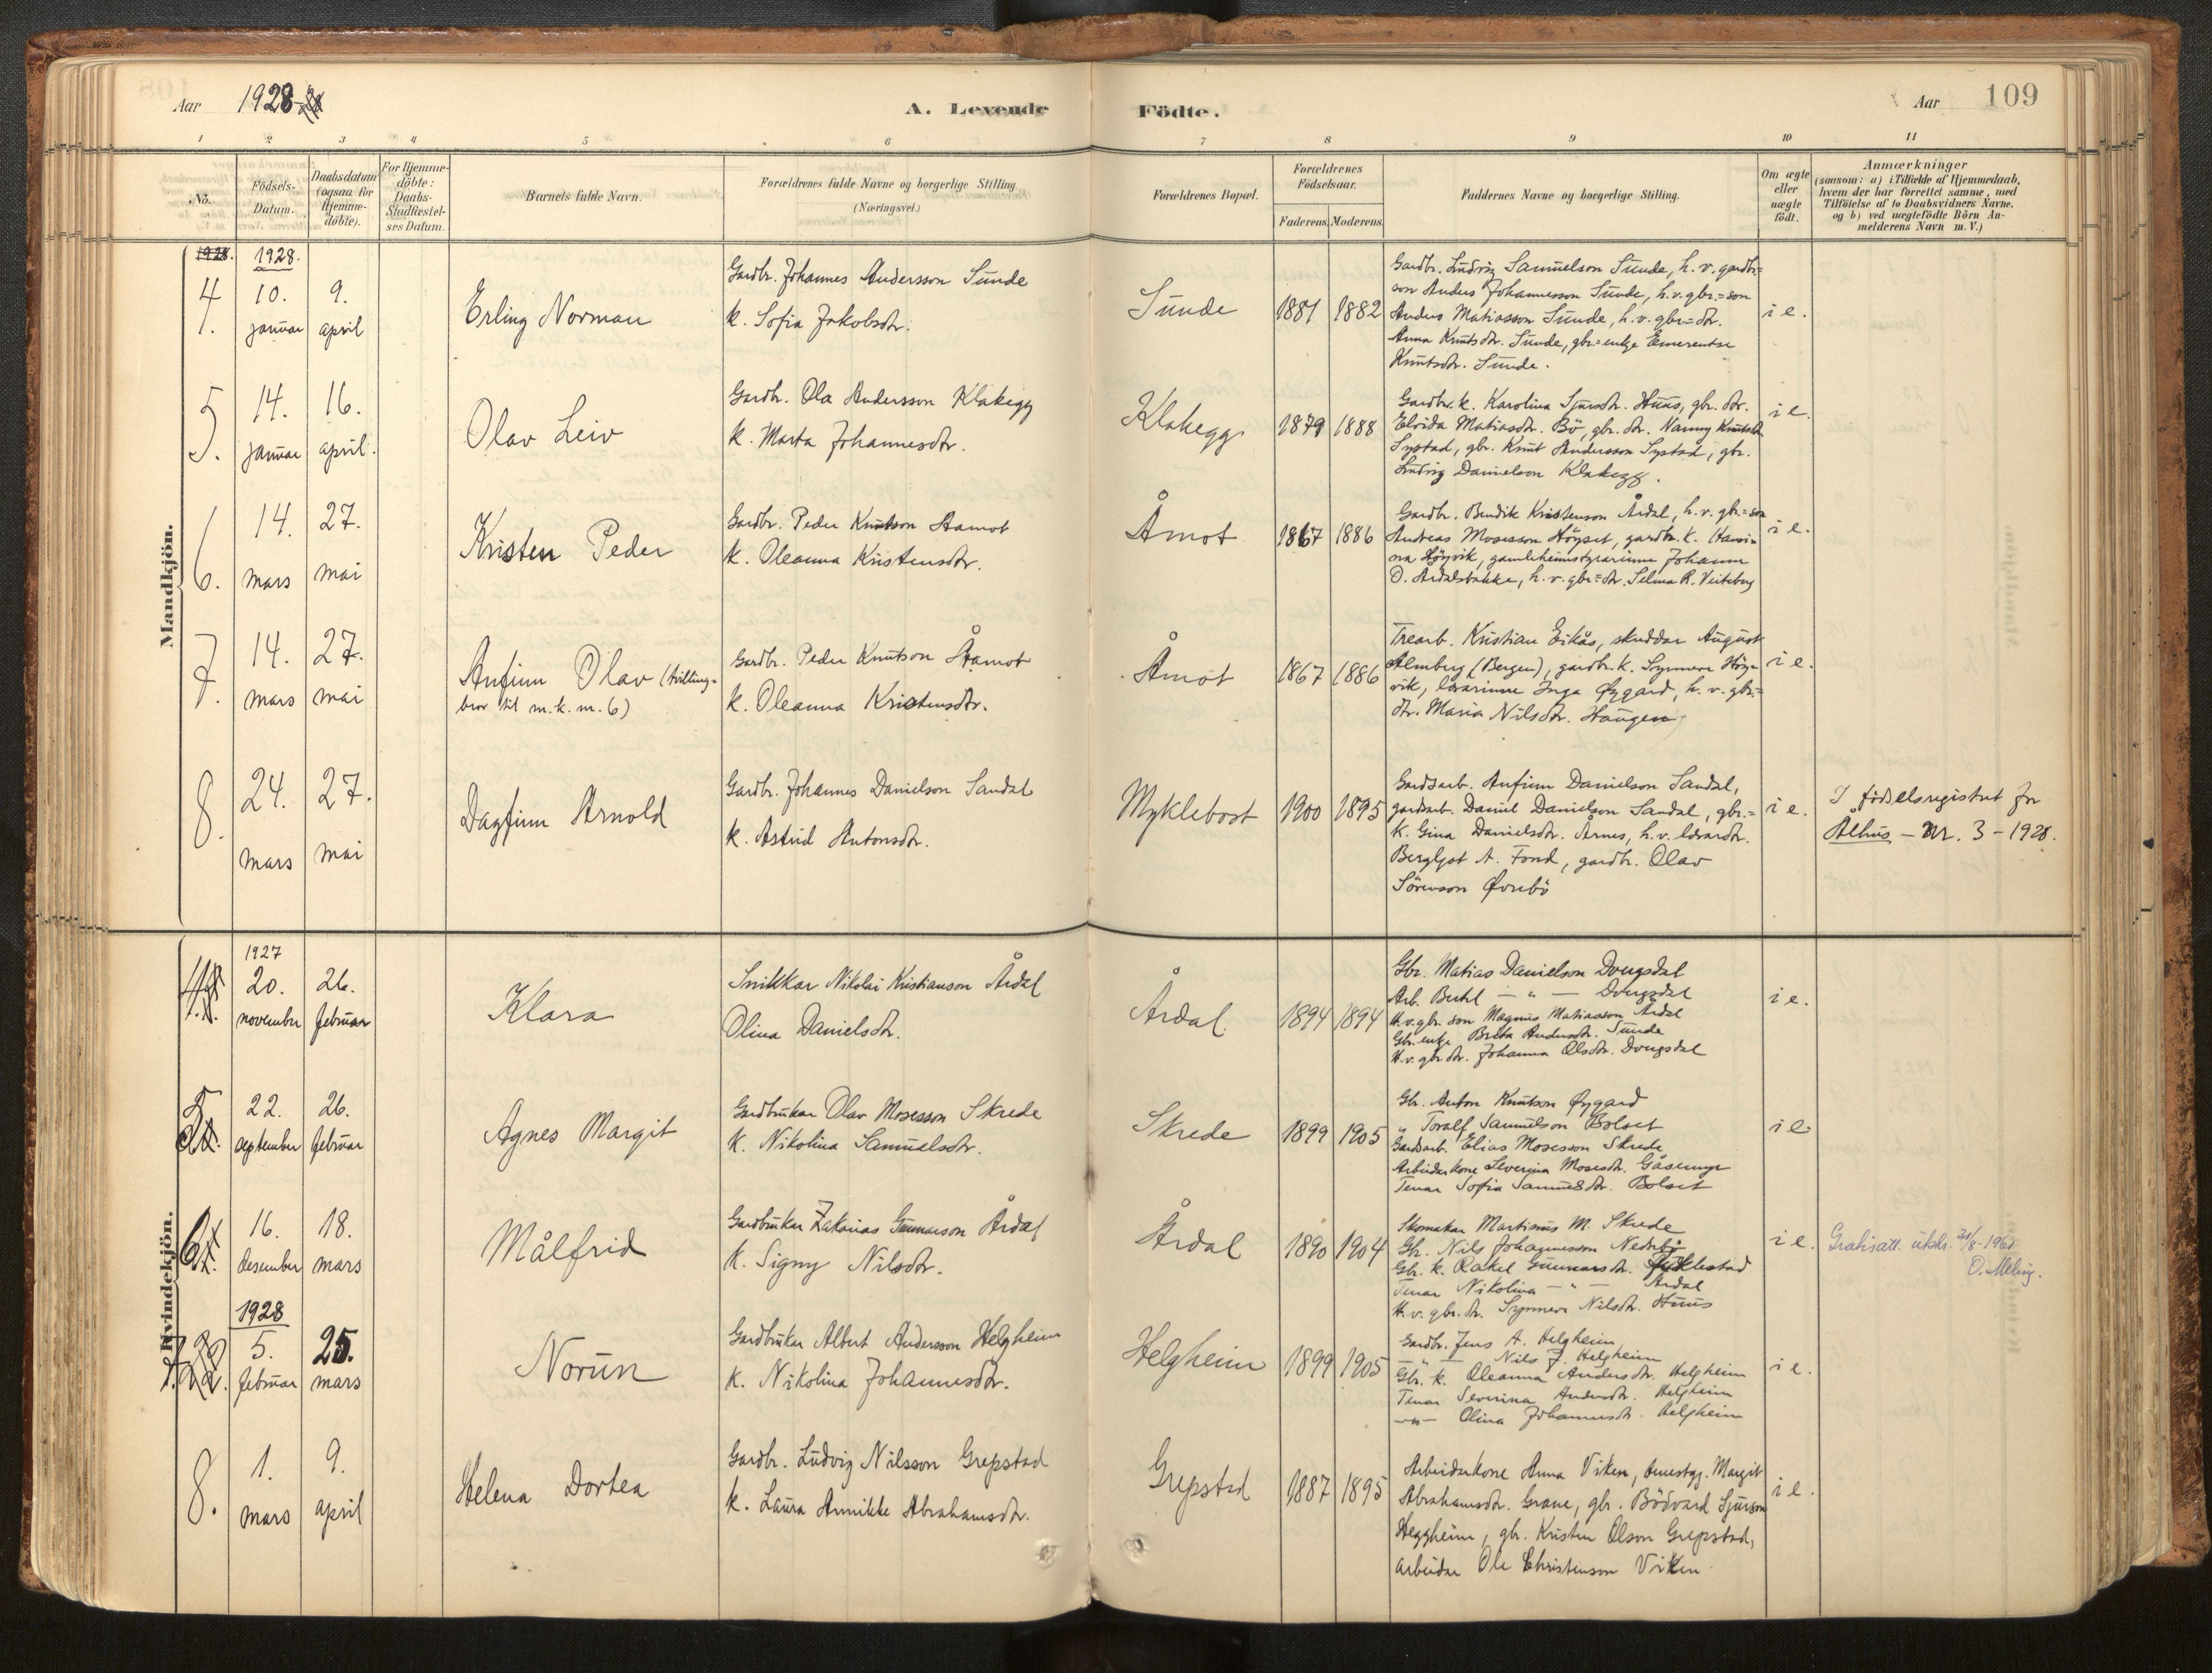 Aar 1928
A. Levende Födte.
Aar 109
1 2 3 4 5 6 7 8 9 10 11
No.
Födsels-Datum.
Daabsdatum (ogsaa for Hjemme-döbte).
For Hjemme-döbte: Daabs-Stadfæstel-ses Datum.
Barnets fulde Navn.
Forældrenes fulde Navne og borgerlige Stilling
(Næringsvei.)
Forældrenes Bopæl.
Forældrenes Födselsaar.
Faderens. Moderens.
Faddernes Navne og borgerlige Stilling.
Om ægte eller uægte födt.
Anmærkninger
(saasom: a) i Tilfælde af Hjemmedaab,
hvem der har forrettet samme, med
Tilföielse af to Daabsvidners Navne,
og b) ved uægtefödte Börn An-
melderens Navn m. V.)
Mandkjön.
1928. 1928.
4. 10. januar 9. april
Erling Norman
Gardbr. Johannes Andersson Sunde
k. Sofia Jakobsdtr.
Sunde 1881 1882
Gardbr. Ludvig Samuelson Sunde, h. v. gardbr=
son Anders Johannesson Sunde, h.v. gbr.=son
Anders Matiasson Sunde, h. v. gbr=dtr.
Anna Knutsdtr. Sunde, gbr=enkje Emerentse
Knutsdtr. Sunde.
i e.
5. 14. januar 16. april.
Olav Leiv
Gardbr. Ola Andersson Klakegg
k. Marta Johannesdtr.
Klakegg 1879 1888
Gardbr. k. Karolina Sjursdtr. Huus, gbr. dtr.
Elvida Matiasdtr. Bö, gbr. dtr. Nanny Knutsdtr.
Systad, gbr. Knut Andersson Systad, gbr.
Ludvig Danielson Klakegg.
i e.
6. 14. mars 27. mai
Kristen Peder
Gardbr. Peder Knutson Åamot
k. Oleanna Kristensdtr.
Åmot 1867 1886
Gardbr. Bendik Kristenson Årdal, h. v. gbr.=son
Andreas Mosesson Höyset, gardbr. k.
Höyvik, gamleheimstyrarinne Johanne
D. Årdalsbakke, h. v. gbr=dtr. Selma R. Veiteberg
i e.
7. 14. mars 27. mai
Anfinn Olav (tvilling=
bror til m. k. nr. 6)
Gardbr. Peder Knutson Åamot
k. Oleanna Kristensdtr.
Åmot 1867 1886
Trearb. Kristian Eikås, skreddar August
Almberg (Bergen), gardbr. k. Synneve Höy-
vik, lærarinne Inga Øygard, h. v. gbr.=
dtr. Maria Nilsdtr. Haugen
i e.
8. 24. mars 27. mai
Dagfinn Arnold
Gardbr. Johannes Danielson Sandal
k. Astrid Antonsdtr.
Myklebost 1900 1895
Gardsarb. Anfinn Danielson Sandal,
gardsarb. Daniel Danielson Sandal, gbr.=
k. Gina Danielsdtr. Årnes, h. v. lærardtr.
Bergljot A. Fond, gardbr. Olav
Sörenson Øvrebö
i e.
I födselsregistret for
Ålhus – Nr. 3 – 1928.
Kvindekjön.
1927
20. november 26. februar
Klara
Snikkar Nikolai Kristianson Årdal
Olina Danielsdtr.
Årdal 1894 1894
Gbr. Matias Danielson Dvergsdal
Arb. Bertel — " — Dvergsdal
H.v. gbr. son Magnus Matiasson Årdal
Gbr. enkje Brita Andersdtr. Sunde
H. v. gbr. dtr. Johanna Olsdtr. Dvergsdal
i e.
5 22. september 26. februar
Agnes Margit
Gardbrukar Olav Mosesson Skrede
k. Nikolina Samuelsdtr.
Skrede 1899 1905
Gbr. Anton Knutson Øygard
" Toralf Samuelson Bolset
Gardsarb. Elias Mosesson Skrede
Arbeidarkone Severina Mosesdtr. Gåsemyr
Tenar Sofia Samuelsdtr. Bolset
i e.
6 16. desember 18. mars
Målfrid
Gardbrukar Zakarias Gunnarson Årdal
k. Signy Nilsdtr.
Årdal 1890 1904
Skomakar Martinus M. Skrede
Gbr. Nils Johannesson Nedrebö
Gbr. k. Rakel Gunnarsdtr.
Tenar Nikolina — " — Årdal
H. v. gbr. dtr. Synneve Nilsdtr. Huus
i e.
Gratisatt. utskr. 31/8-1961
O. Meling.
1928
7. 5. februar 25. mars
Norun
Gardbrukar Albert Andersson Helgheim
k. Nikolina Johannesdtr.
Helgheim 1899 1905
Gardbr. Jens A. Helgheim
— " — Nils J. Helgheim
Gbr. k. Oleanna Andersdtr. Helgheim
Tenar Severina Andersdtr. Helgheim
— " — Olina Johannesdtr. Helgheim
i e.
8. 1. mars 9. april
Helena Dortea
Gardbr. Ludvig Nilsson Grepstad
k. Laura Annikke Abrahamsdtr.
Grepstad 1887 1895
Arbeidarkone Anna Viken, tenestgj. Margit
Abrahamsdtr. Grane, gbr. Bödvard Sjurson
Heggheim, gbr. Kristen Olson Grepstad,
arbeidar Ole Christenson Viken
i e.